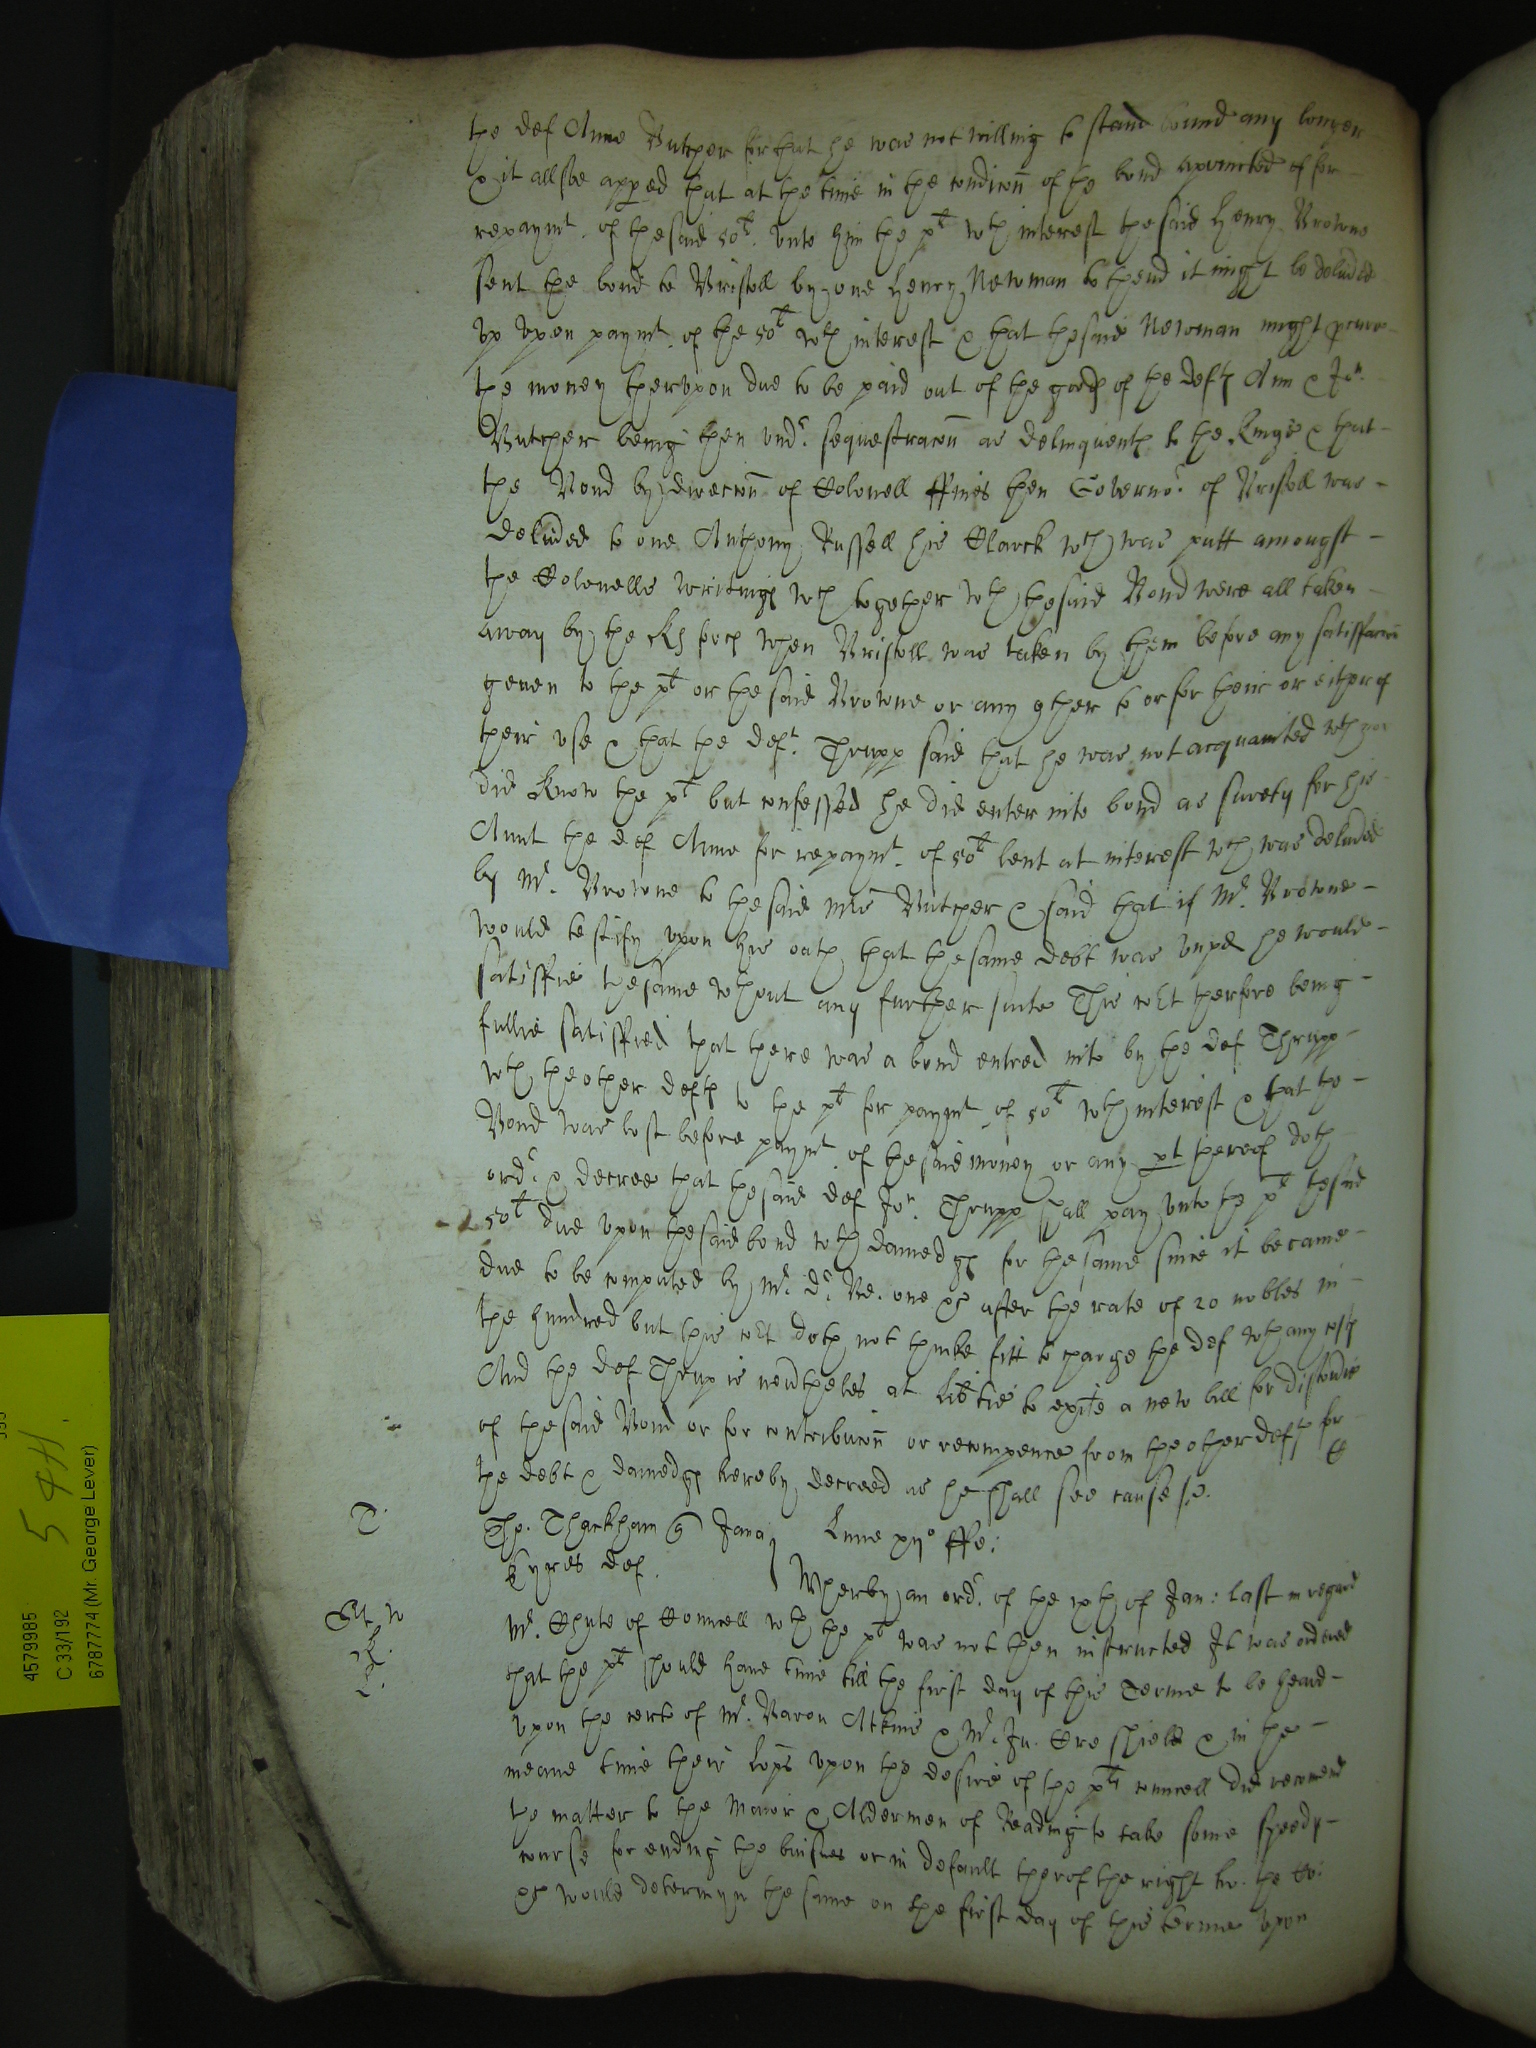 the def Anne Butcher for that he was not willing to stand bound any longer
& it allsoe apped that at the time in the condicon of the bond apointed of for
repaymt. of the said 50l. unto him the plt wth interest the said Henry Browne
sent the bond to Bristoll by one Henry Newman to thend it might be delived
up upon paymt. of the 50l wth interest & that the said Newman might pcure
the money therupon due to be paid out of the goods of the defts Ann & Jon.
Butcher being then undr. sequestracon as delinquents to the Kinge & that
the Bond by direccon of Colonell ffines then Governor. of Bristoll was
delived to one Anthony Russell his Clarck wch was putt amongst
the Colonells writings wch together wth the said Bond were all taken
away by the Ks forces when Bristoll was taken by them before any satisfaccon
geven to the plt or the said Browne or any other to or for their or either of
their use & that the deft. Thrupp said that he was not acquainted wth nor
did know the plt but confessed he did enter into bond as surety for his
Aunt the def Anne for repaymt. of 50l lent at interest wch was delived
by Mr. Browne to the said Mris Butcher & said that if Mr. Browne
would testify upon his oath that the same debt was unpd he would
satisffie the same wthout any further suite This Cort therfore being
fullie satisffied that there was a bond entred into by the def Thrupp
wth the other defts to the plt for paymt. of 50l wth interest & that the
Bond was lost before paymt. of the said money or any pt thereof doth
ordr. & decree that the said def Jon. Thrupp shall pay unto the plt the said
50l due upon the said bond wth damedgs for the same since it became
due to be computed by Mr. Dr. Be. one &c after the rate of 20 nobles in
the hundred but this Cort doth not thinke fitt to charge the def wth any costs
And the def Thrup is nevtheles at libtie to exhite a new bill for discovie
of the said Bond or for contribucon or recompence from the other defts for
the debt & damedgs hereby decreed as he shall see cause so.
T.
Tho. Thackham q Jana Lune xii° ffe:
Eyres def.
Wherby an ordr. of the ixth of Jan: last in regard
Mr. Chute of Councell wth the plt was not then instructed It was ordered
that the plt should have time till the first day of this Terme to be heard
upon the certe of Mr. Baron Atkins & Mr. Ju. Creshield & in the
meane time their Lops upon the desire of the plts councell did recomend
the matter to the Maior & Aldermen of Reading to take some speedy
course for ending the buisnes or in default therof the right ho. the Co:
&c would determyn the same on the first day of this terme upon
4579985
C 33/192
6787774 (Mr. George Lever)